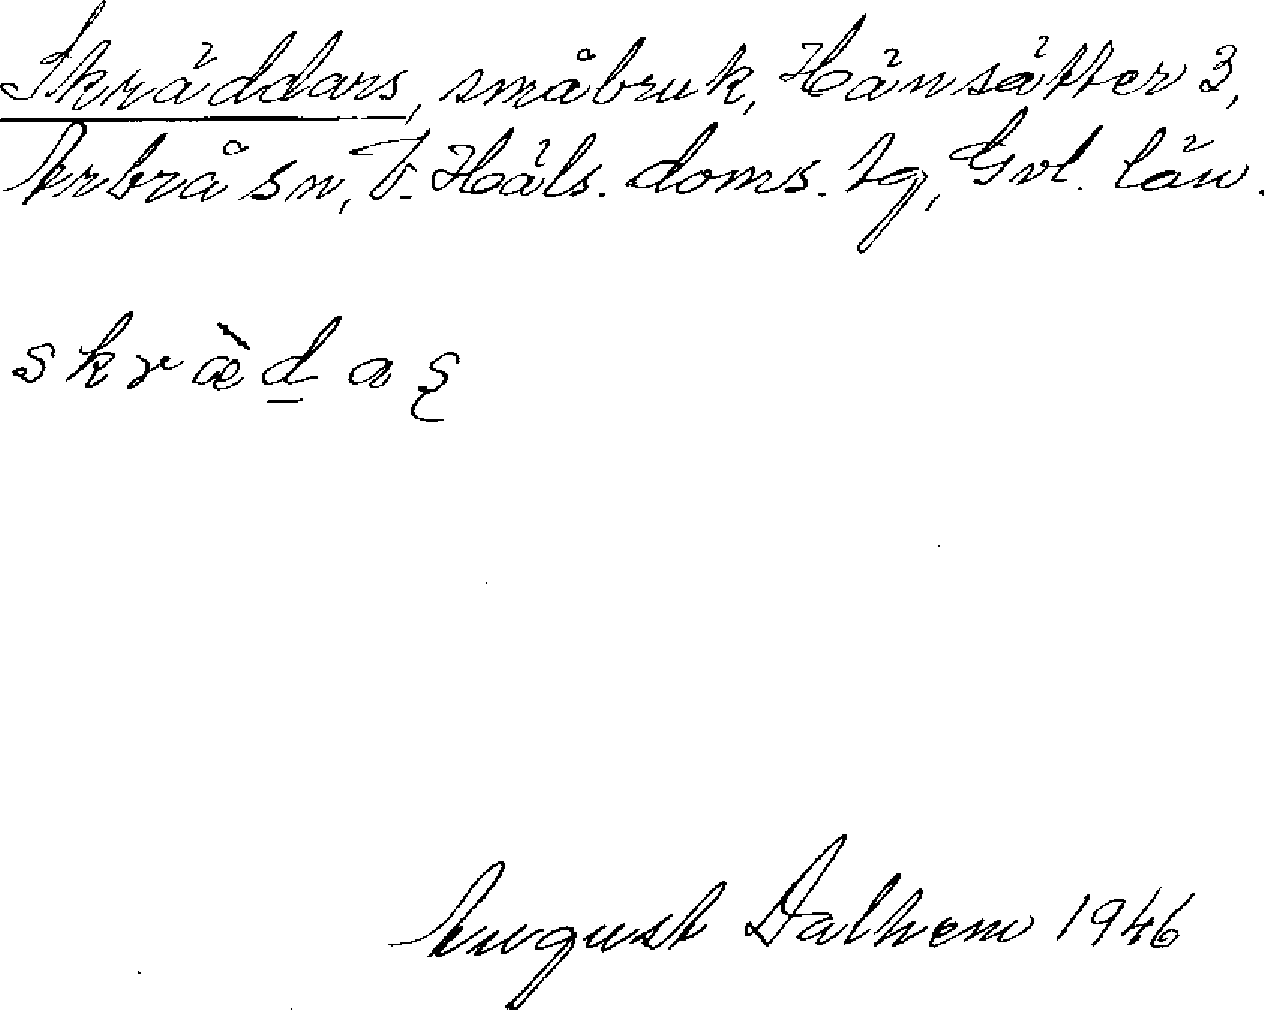 Skräddars, småbruk, Hänsätter 3,
Arbrå sn, V. Häls. doms. tg, Gvl. län.
skræ̀d̲aʂ
August Dalhem 1946